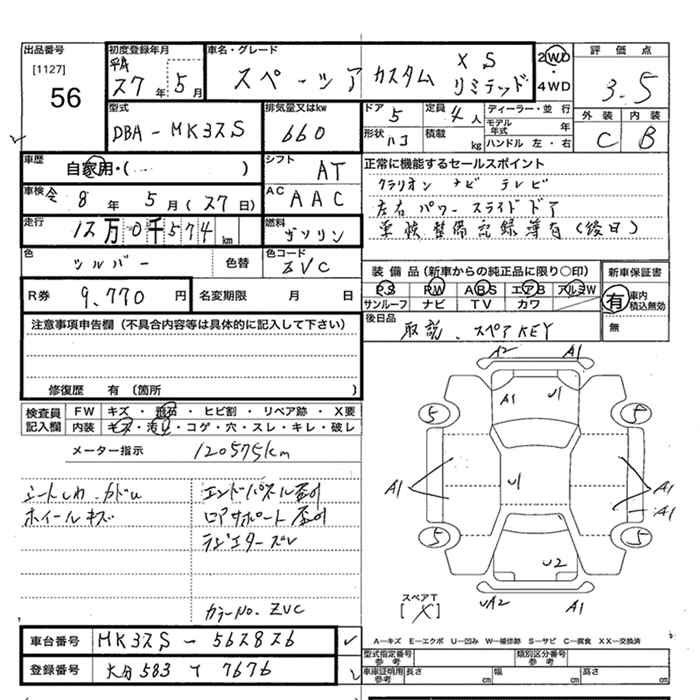 出品番号
[1127]
56
初度登録年月
平成
27 年 5 月
車名・グレード
スペーシア カスタム XS
リミテッド
2WD
・
4WD
評価点
3.5
外装 内装
C B
型式
DBA-MK32S
排気量又はkw
660
ドア 5
定員 4 人
形状 ハコ
積載 kg
ディーラー・並 行
モデル年式 年
ハンドル 左・右
車歴
自家用・( )
シフト
AT
車検 令 8 年 5 月 (27 日)
AC
AAC
走行
12万0千574 km
燃料
ガソリン
色
シルバー
色替
色コード
ZVC
R券 9,770 円
名変期限 月 日
正常に機能するセールスポイント
クラリオン ナビ テレビ
左右 パワースライドドア
車検整備記録簿有(後日)
装備品(新車からの純正品に限り○印)
P.S PW ABS エアB アルミW
サンルーフ ナビ TV カワ
新車保証書
有 車内積込無効
無
後日品
取説.スペアKEY
注意事項申告欄(不具合内容等は具体的に記入して下さい)
修復歴 有(箇所 )
検査員記入欄
FW キズ・飛石・ヒビ割・リペア跡・X要
内装 キズ・汚レ・コゲ・穴・スレ・キレ・破レ
メーター指示 120575km
シートしわ.かびし
ホイールキズ
エンドパネル歪み
ロアサポート歪み
ラジエターズレ
カラーNo. ZVC
A2 A1
A1 U1
5 5
A1 U1 A1
A1
5 5
U2
UA2 A1
スペアT
[X]
A-キズ E-エクボ U-凹み W-補修跡 S-サビ C-腐食 XX-交換済
車台番号 MK32S-562826
登録番号 大分 583 て 7676
型式指定番号 参考
類別区分番号 参考
車庫証明用 参考
長さ cm 幅 cm 高さ cm